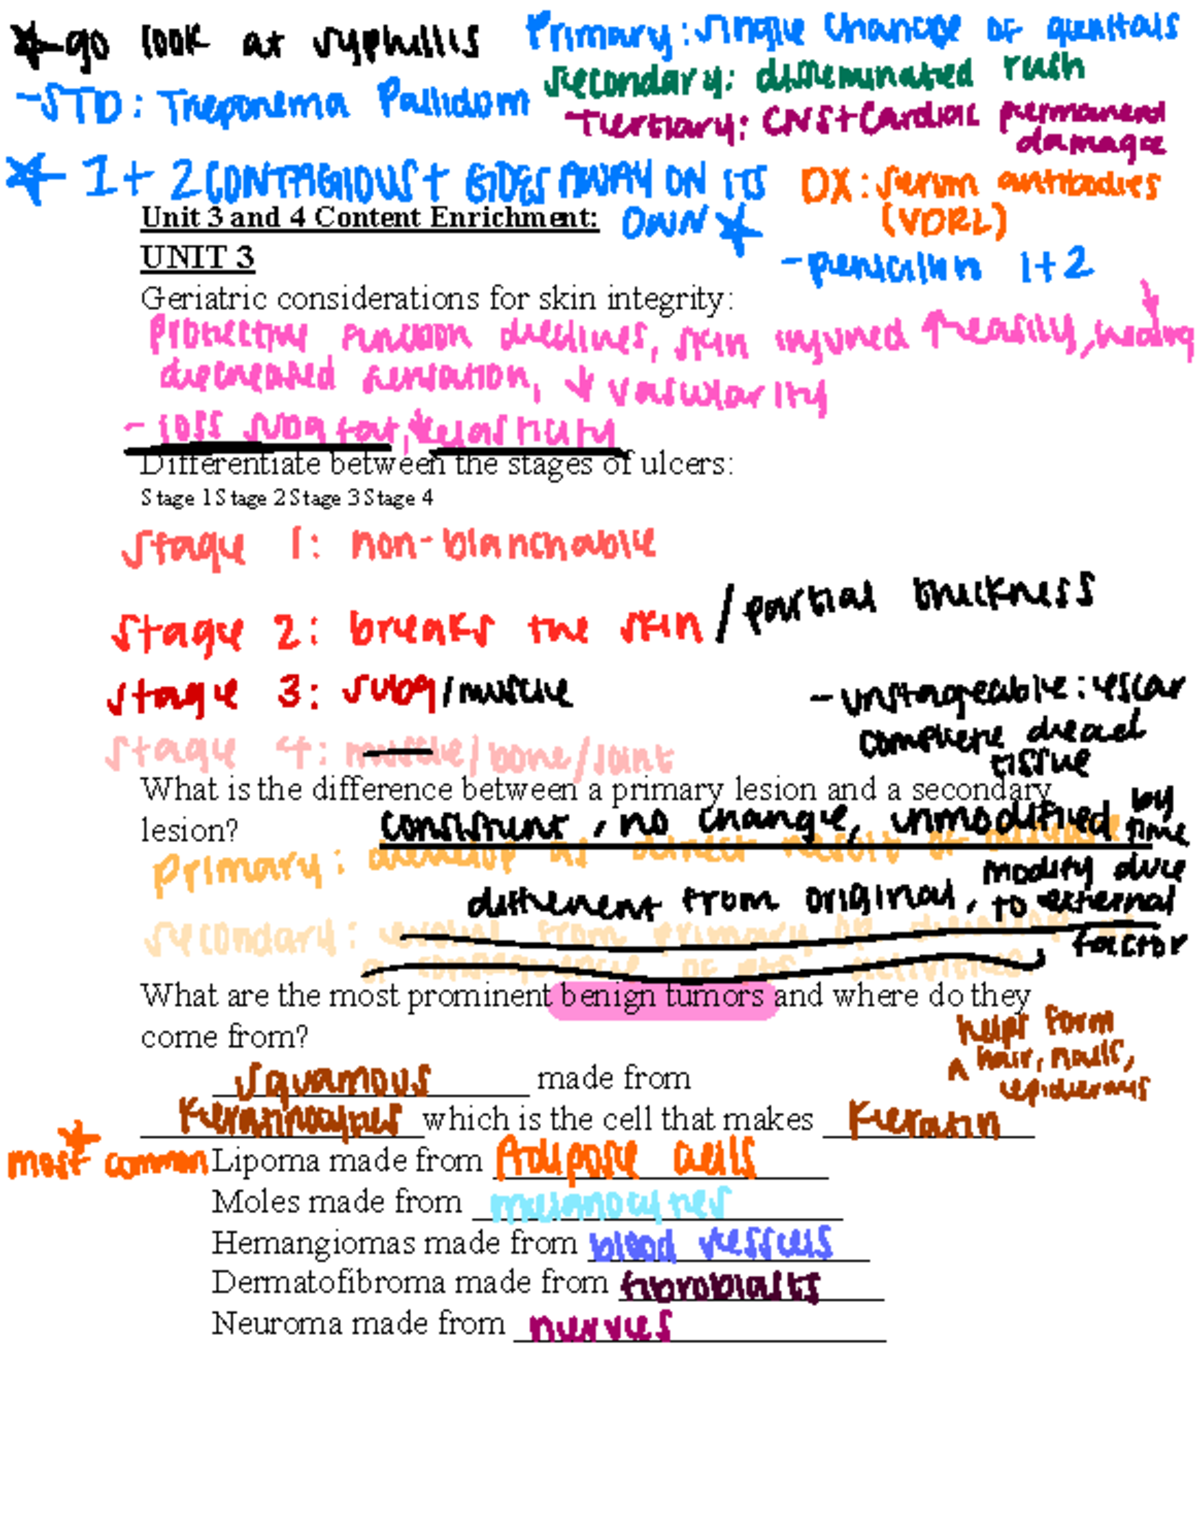 go look at syphillis
Primary: single chancre of genitals
-STD: Treponema Pallidom
secondary: disseminated rash
Tertiary: CNS + Cardiac permanent damage
1 + 2 CONTAGIOUS + GOES AWAY ON ITS OWN
DX: serum antibodies (VDRL)
-penicillin 1+2
Unit 3 and 4 Content Enrichment:
UNIT 3
Geriatric considerations for skin integrity:
protective function declines, skin injured ↑ easily, ↓ healing
decreased sensation, ↓ vascularity
- loss subq fat, ↓ elasticity
Differentiate between the stages of ulcers:
Stage 1 Stage 2 Stage 3 Stage 4
stage 1: non-blanchable
stage 2: breaks the skin / partial thickness
stage 3: subq / muscle
-unstageable: escar
complete dead
tissue
stage 4: muscle / bone / joint
What is the difference between a primary lesion and a secondary
lesion?
consistent, no change, unmodified by time
primary: develop as direct result of
different from original, modify due to external factor
secondary: evolve from primary or
a consequence of activities
What are the most prominent benign tumors and where do they
come from?
helps form
hair, nails,
epidermis
squamous made from
Keratinocytes which is the cell that makes Keratin
most common Lipoma made from Adipose cells
Moles made from melanocytes
Hemangiomas made from blood vessels
Dermatofibroma made from fibroblasts
Neuroma made from nerves